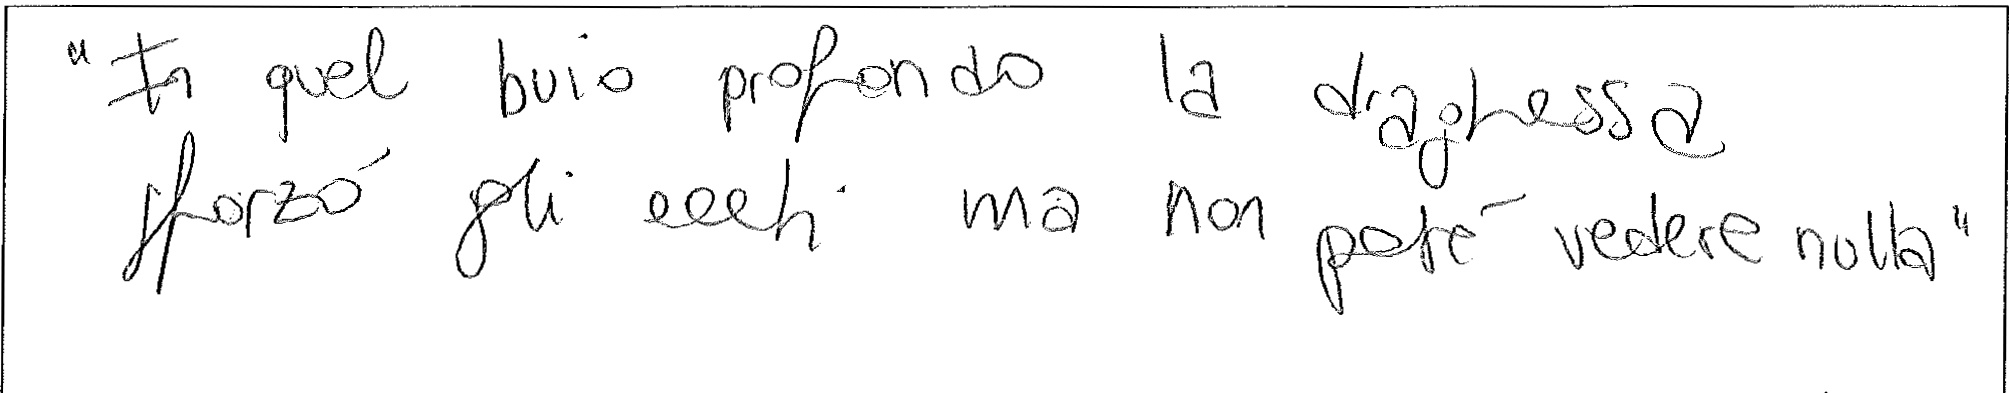 "In quel buio profondo la draghessa
sforzó gli occhi ma non poté vedere nulla"